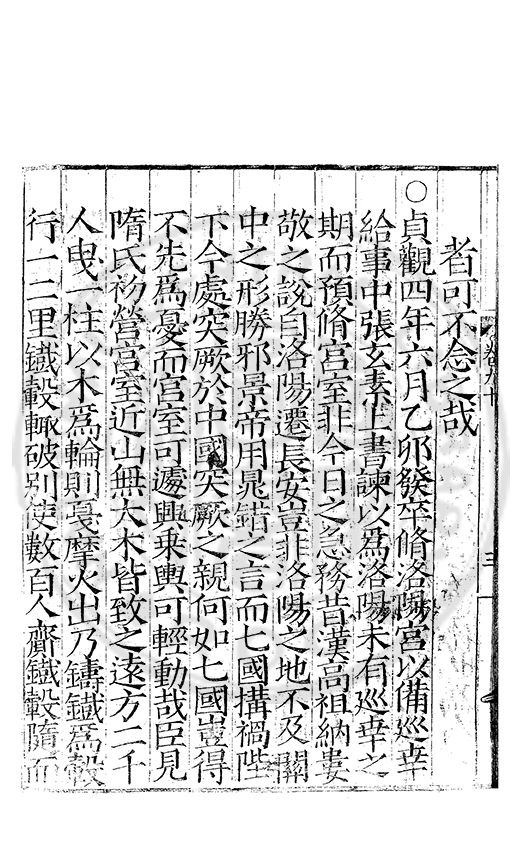 者可不念之哉
○貞觀四年六月乙卯發卒脩洛陽宮以備巡幸
給事中張玄素上書諫以爲洛陽未有巡幸之
期而預脩宮室非今日之急務昔漢高祖納婁
敬之說自洛陽遷長安豈非洛陽之地不及關
中之形勝邪景帝用晁錯之言而七國搆禍陛
下今處突厥於中國突厥之親何如七國豈得
不先爲憂而宮室可遽興乗輿可輕動哉臣見
隋氏初營宮室近山無大木皆致之遠方二千
人曳一柱以木爲輪則戛摩火出乃鑄鐵爲轂
行一二里鐵轂輙破别使數百人齎鐵轂隨而